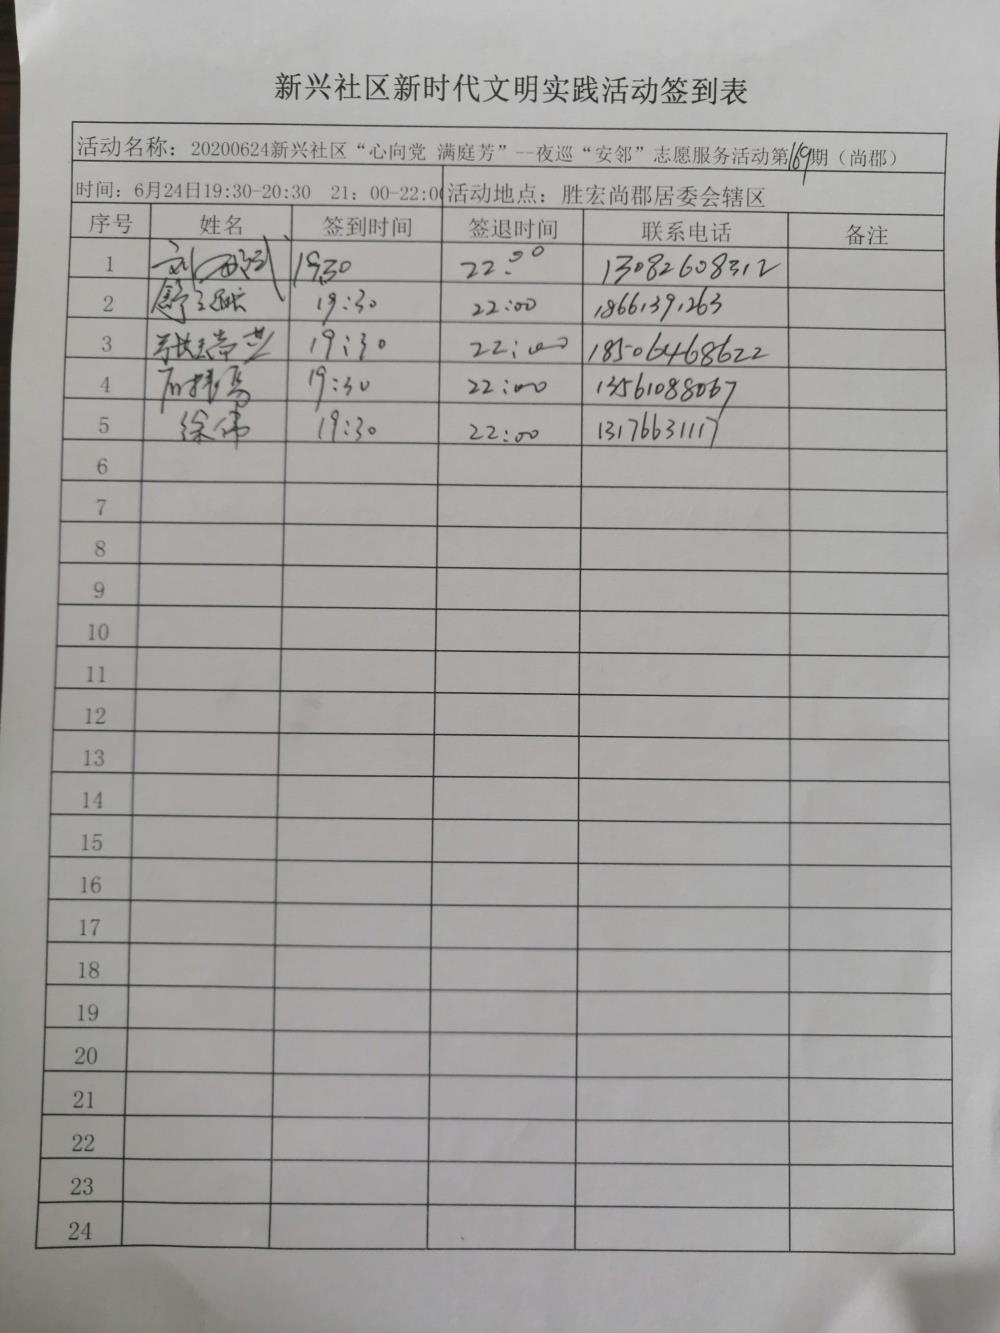 新兴社区新时代文明实践活动签到表
活动名称：20200624新兴社区“心向党 满庭芳”--夜巡“安邻”志愿服务活动第169期（尚郡）
时间：6月24日19:30-20:30 21：00-22:00 活动地点：胜宏尚郡居委会辖区
序号 姓名 签到时间 签退时间 联系电话 备注
1 1930 22:00 13082608312
2 19:30 22:00 18661391263
3 19:30 22:00 18506468622
4 19:30 22:00 13561088067
5 徐伟 19:30 22:00 13176631117
6
7
8
9
10
11
12
13
14
15
16
17
18
19
20
21
22
23
24